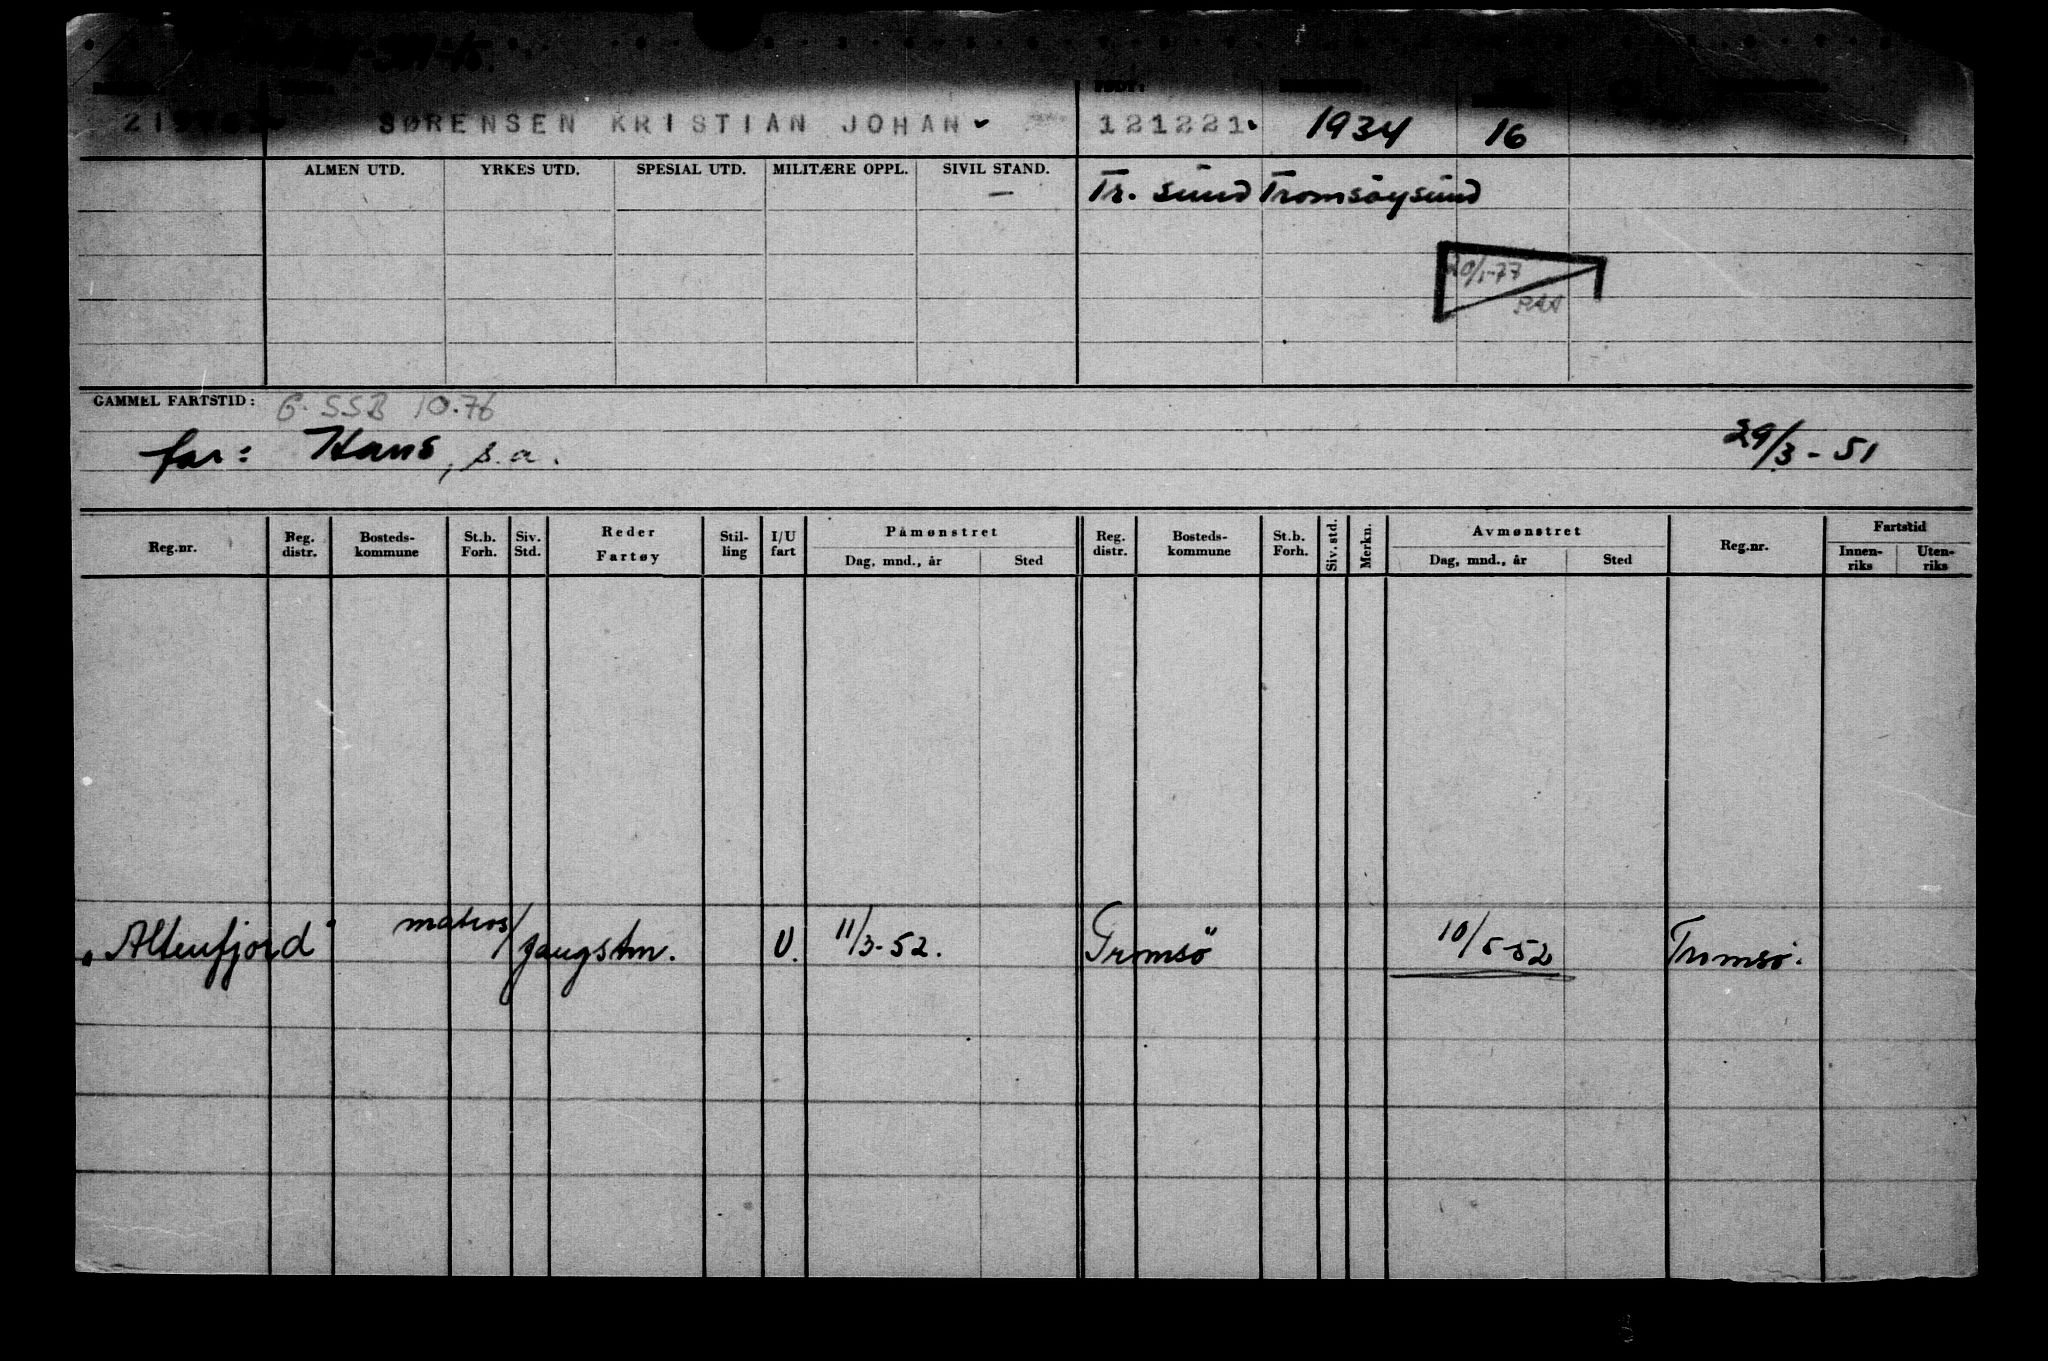 SØRENSEN KRISTIAN JOHAN 121221 1934 16
ALMEN UTD. YRKES UTD. SPESIAL UTD. MILITÆRE OPPL. SIVIL STAND.
— Tr. sund Tromsøysund
20/1-77
GAMMEL FARTSTID: G. SSB 10.76
far: Hans, s.a. 29/3 - 51
Reg.nr. Reg. distr. Bosteds-kommune St.b. Forh. Siv. Std. Reder Fartøy Stil-ling I/U fart Påmønstret Dag, mnd., år Sted Reg. distr. Bosteds-kommune St.b. Forh. Siv. std. Merkn. Avmønstret Dag, mnd., år Sted Reg.nr. Fartstid Innen-riks Uten-riks
"Altenfjord" matros/fangstm. U. 11/3-52. Tromsö 10/5-52 Tromsö.